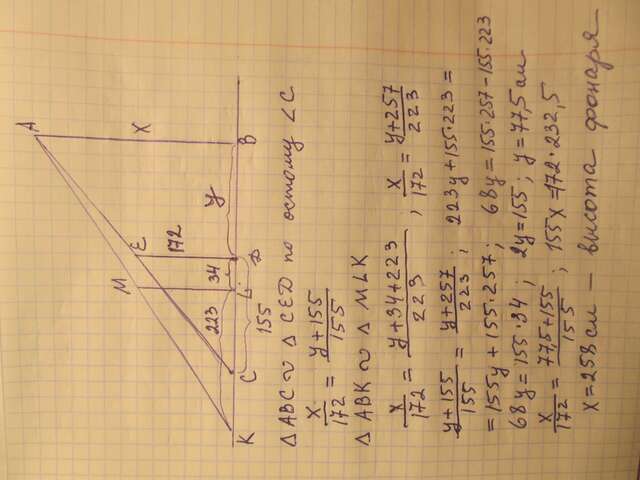 A
X
M
E
172
34
y
223
K
C
L
D
B
155
△ABC ∾ △CED по острому ∠C
x/172 = (y+155)/155
△ABK ∾ △MLK
x/172 = (y+34+223)/223 ; x/172 = (y+257)/223
(y+155)/155 = (y+257)/223 ; 223y+155·223 =
= 155y+155·257 ; 68y = 155·257-155·223
68y = 155·34 ; 2y = 155 ; y = 77,5 см
x/172 = (77,5+155)/155 ; 155x = 172·232,5
x = 258 см – высота фонаря